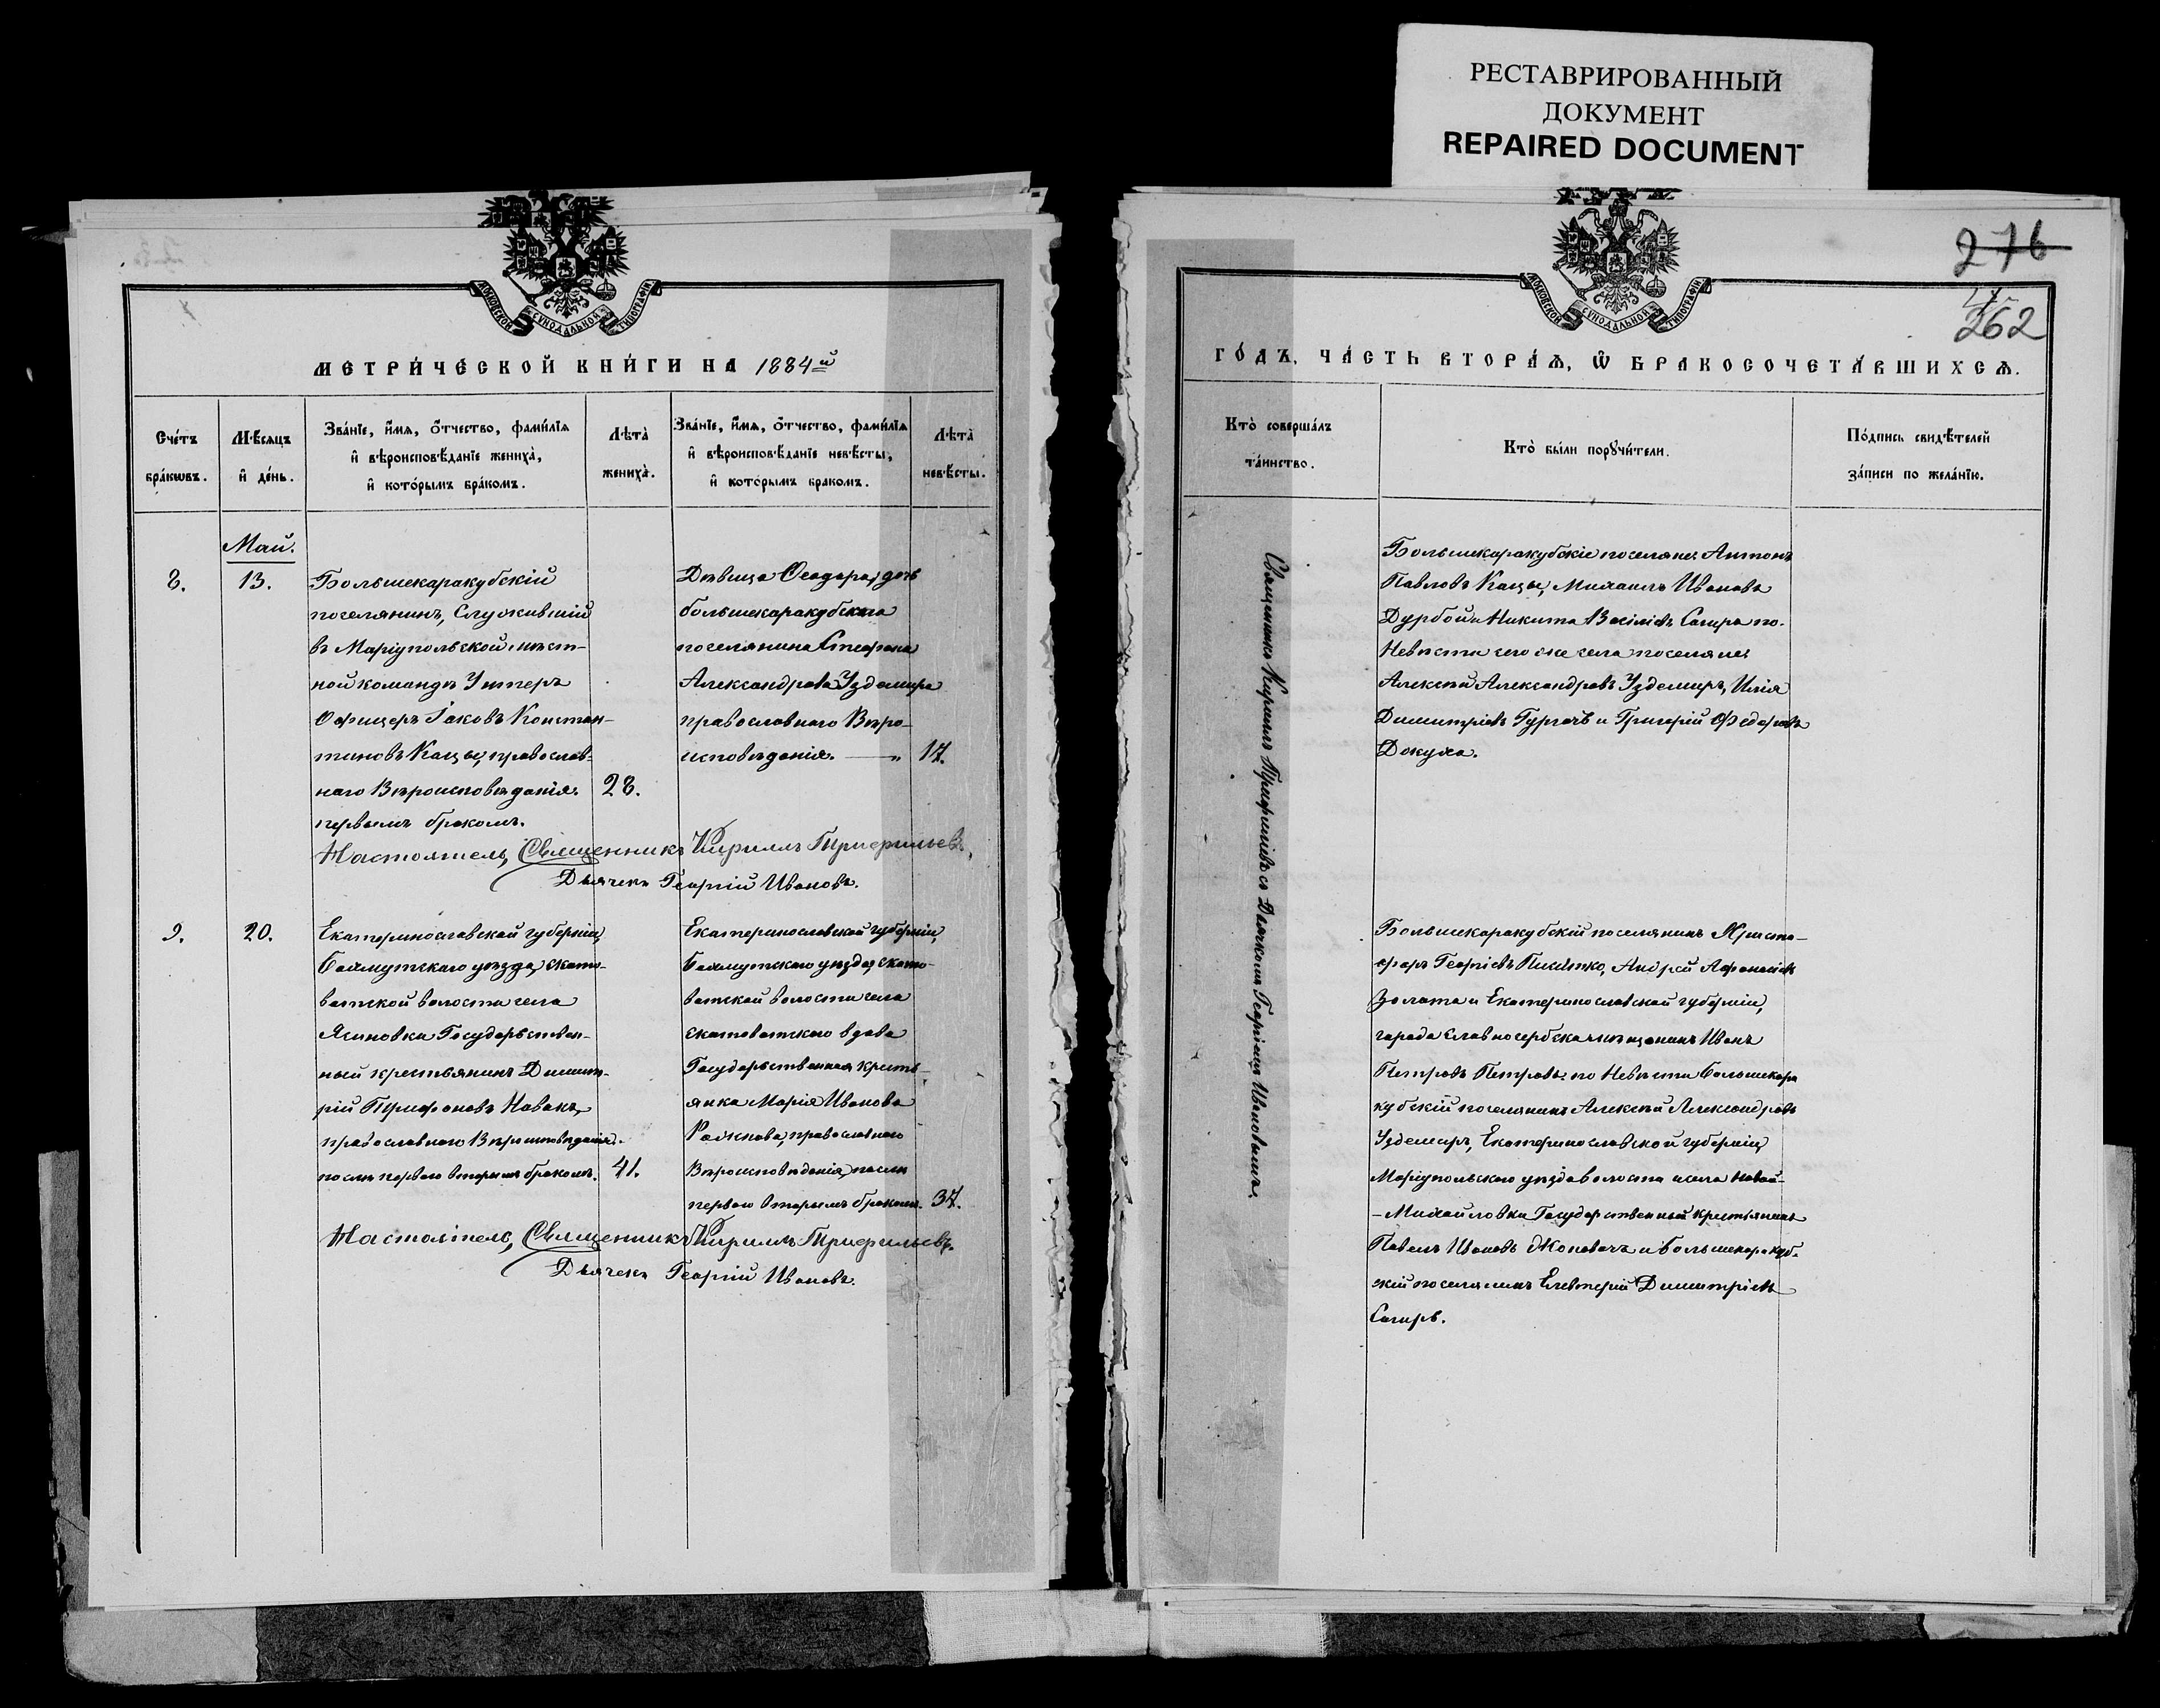 РЕСТАВРИРОВАННЫЙ
ДОКУМЕНТ
REPAIRED DOCUMENT
МОСКОВСКОЙ СѴНОДАЛЬНОЙ ТИПОГРАФІИ
МЕТРИ́ЧЕСКОЙ КНИ́ГИ НА 1884й
Сче́тъ
бра́кѡвъ.
Мѣ́сяцъ
и҆ де́нь.
Зва́нїе, и҆́мѧ, ѻ҆́тчество, фами́лїѧ
и҆ вѣроисповѣ́данїе жениха̀,
и҆ кото́рымъ бра́комъ.
Лѣта̀
жениха̀.
Зва́нїе, и҆́мѧ, ѻ҆́тчество, фами́лїѧ
и҆ вѣроисповѣ́данїе невѣ́сты,
и҆ кото́рымъ бракомъ.
Лѣта̀
невѣ́сты.
Май.
8.
13.
Большекаракубскій
поселянинъ, Служившій
въ Маріупольской мѣст-
ной командѣ Унтеръ
Офицеръ Іаковъ Констан-
тиновъ Кацы, православ-
наго Вѣроисповѣданія.
первымъ бракомъ.
28.
Дѣвица Ѳеодора, дочь
большекаракубскаго
поселянина Стефана
Александрова Уздемира
православнаго Вѣро-
исповѣданія. — „
17.
Настоятель, Священникъ Кириллъ Трифильевъ.
Дьячекъ Георгій Ивановъ.
9.
20.
Екатеринославской губерніи,
Бахмутскаго уѣзда, Ското-
ватской волости села
Ясиновка Государствен-
ный крестьянинъ Димит-
рій Трифоновъ Новакъ,
православнаго Вѣроисповѣданія.
послѣ перваго вторымъ бракомъ.
41.
Екатеринославской губерніи,
Бахмутскаго уѣзда, Ското-
ватской волости села
Скотоватскаго вдова
Государственная кресть-
янка Марія Иванова
православнаго
Вѣроисповѣданія, послѣ
перваго вторымъ бракомъ.
37.
Настоятель, Священникъ Кириллъ Трифильевъ.
Дьячекъ Георгій Ивановъ.
276
262
МОСКОВСКОЙ СѴНОДАЛЬНОЙ ТИПОГРАФІИ
ГО́ДЪ, ЧА́СТЬ ВТОРА́Ѧ, Ѽ БРАКОСОЧЕТА́ВШИХСѦ.
Кто̀ соверша́лъ
та́инство.
Кто̀ бы́ли порꙋчи́тели.
По́дпись свидѣ́телей
за́писи по жела́нїю.
Священникъ Кириллъ Трифильевъ съ Дьячкомъ Георгіемъ Ивановымъ.
Большекаракубскіе поселяне: Антонъ
Павловъ Кацы, Михаилъ Ивановъ
Дурбой и Никита Василіевъ Сагиръ по
Невѣсти сего же села поселяне:
Алексѣй Александровъ Уздемиръ, Илія
Димитріевъ Гургачъ и Григорій Федоровъ
Докуха.
Большекаракубскій поселянинъ Христо-
форъ Георгіевъ Андрей Афанасіевъ
Золата и Екатеринославской губерніи,
города Славносербска мѣщанинъ Иванъ
Петровъ Петровъ. по Невѣсти Большекара
кубскій поселянинъ Алексѣй Александровъ
Уздемиръ, Екатеринославской губерніи,
Маріупольскаго уѣзда волости и села Новой-
-Михайловки Государственный крестьянинъ
Павелъ Ивановъ Коновачъ и Большекаракуб-
скій поселянинъ Елевтерій Димитріевъ
Сагиръ.